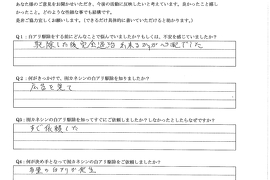 あなた様のご意見をお聞かせいただき、今後の活動に反映したいと考えています。良かったこと嬉し
かったこと。どのような些細な事でも結構です。
是非ご協力宜しくお願いします。(できるだけ具体的に書いていただけると助かります。)
Q1：白アリ駆除をする前にどんなことで悩んでいましたか？もしくは、不安を感じていましたか？
駆除した後完全退治出来るかが心配でした
Q2：何がきっかけで、㈲カネシンの白アリ駆除を知りましたか？
広告を見て
Q3：㈲カネシンの白アリ駆除を知ってすぐにご依頼しましたか？しなかったとしたらなぜですか？
すぐ依頼した
Q4：何が決め手となって㈲カネシンの白アリ駆除をご依頼しましたか？
白アリが発生